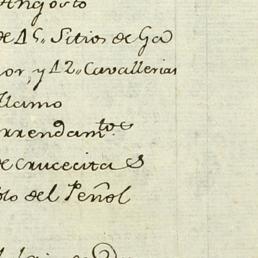 Angosto
de 15. Sitios de Ga
or, y 12. Cavallerias
Llamo
arrendam.to
de Crucecita S
olo del Peñol